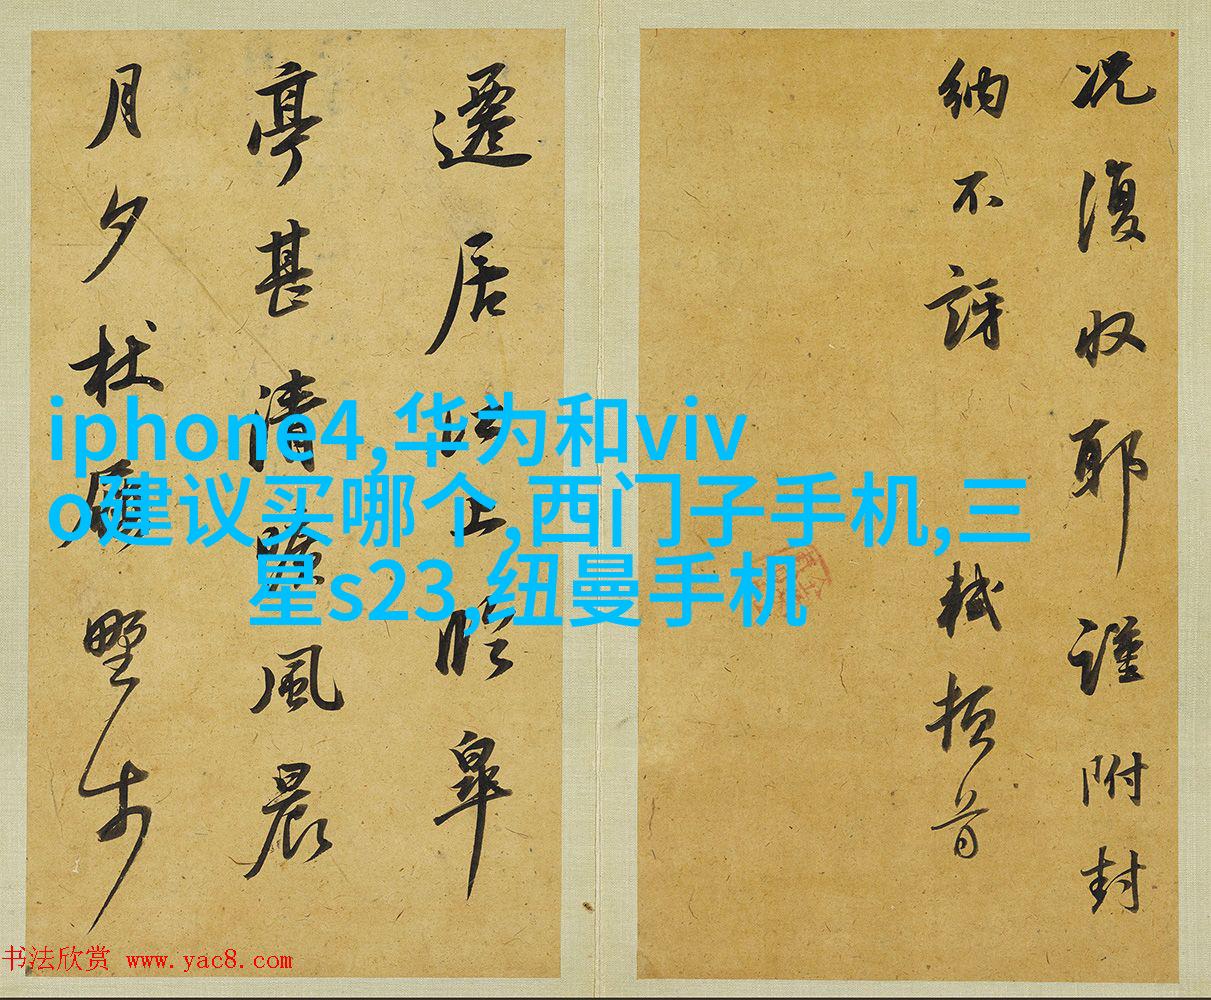 况復收耶謹附封
納不訝軾頓首
遷居江上臨皋
亭甚清曠風晨
月夕杖履野步
iphone4,华为和viv
o建议买哪个,西门子手机,三
星s23,纽曼手机
书法欣赏 www.yac8.com